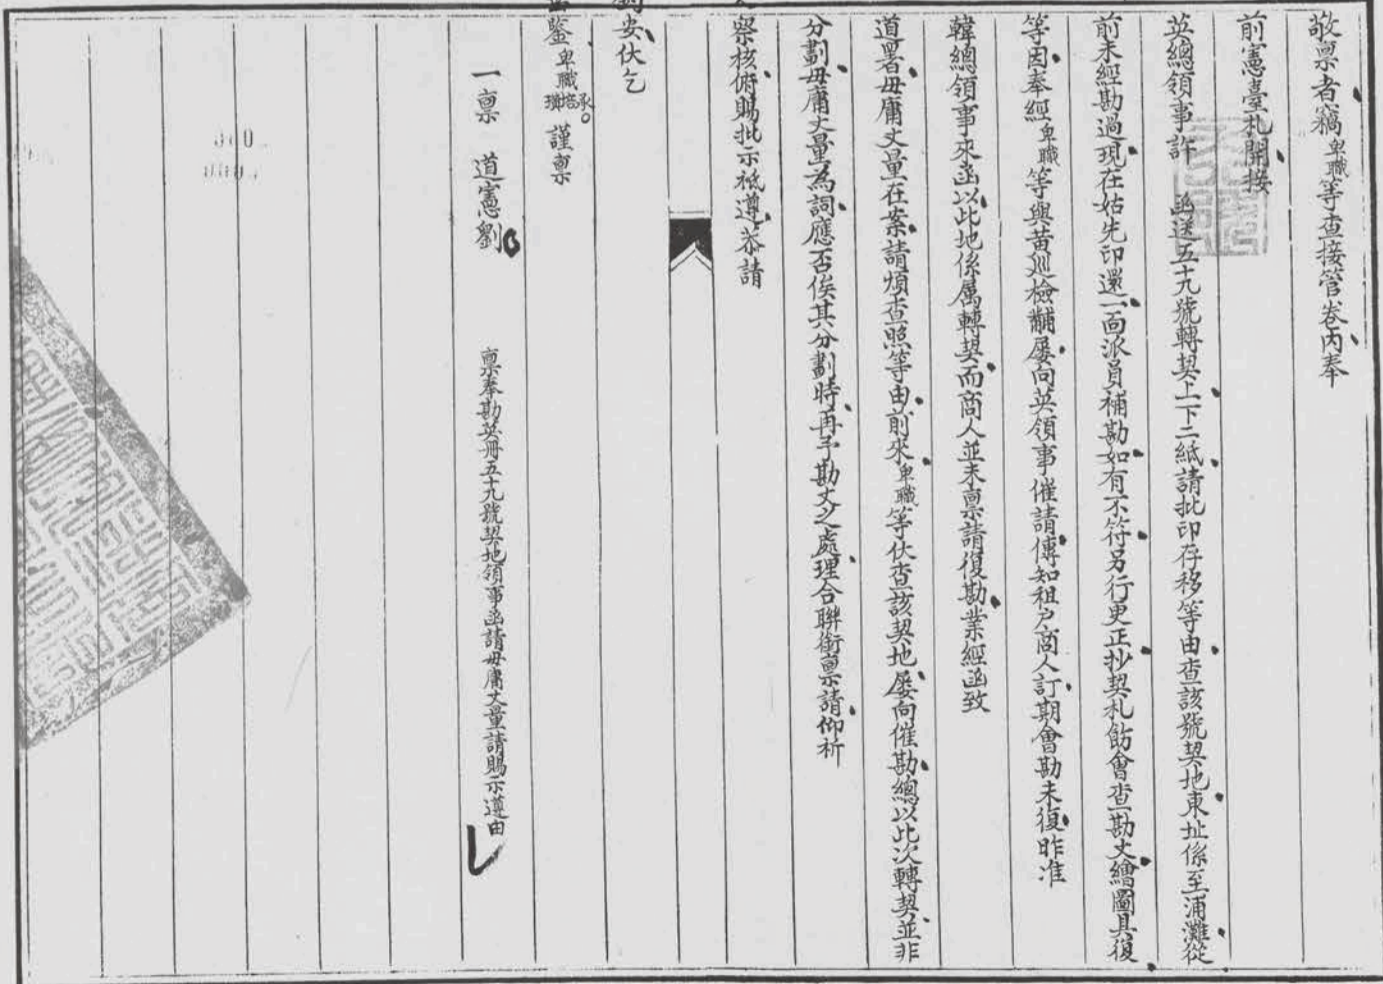 敬禀者竊卑職等查接管卷內奉
前憲臺札開接
英總領事許 函送五十九號轉契上下二紙請批印存移等由查該號契地東址係至浦灘從
前未經勘過現在姑先印還一面派員補勘如有不符另行更正抄契札飭會查勘丈繪圖具復
等因奉經卑職等與黃巡檢黼屢向英領事催請傳知租戶商人訂期會勘未復昨准
韓總領事來函以此地係屬轉契而商人並未禀請復勘業經函致
道署毋庸丈量在案請煩查照等由前來卑職等伏查該契地屢向催勘總以此次轉契並非
分劃毋庸丈量為詞應否俟其分劃時再予勘丈之處理合聯銜禀請仰祈
察核俯賜批示祗遵恭請
安伏乞
鑒卑職 謹禀
一禀 道憲劉
禀奉勘英冊五十九號契地領事函請毋庸丈量請賜示遵由